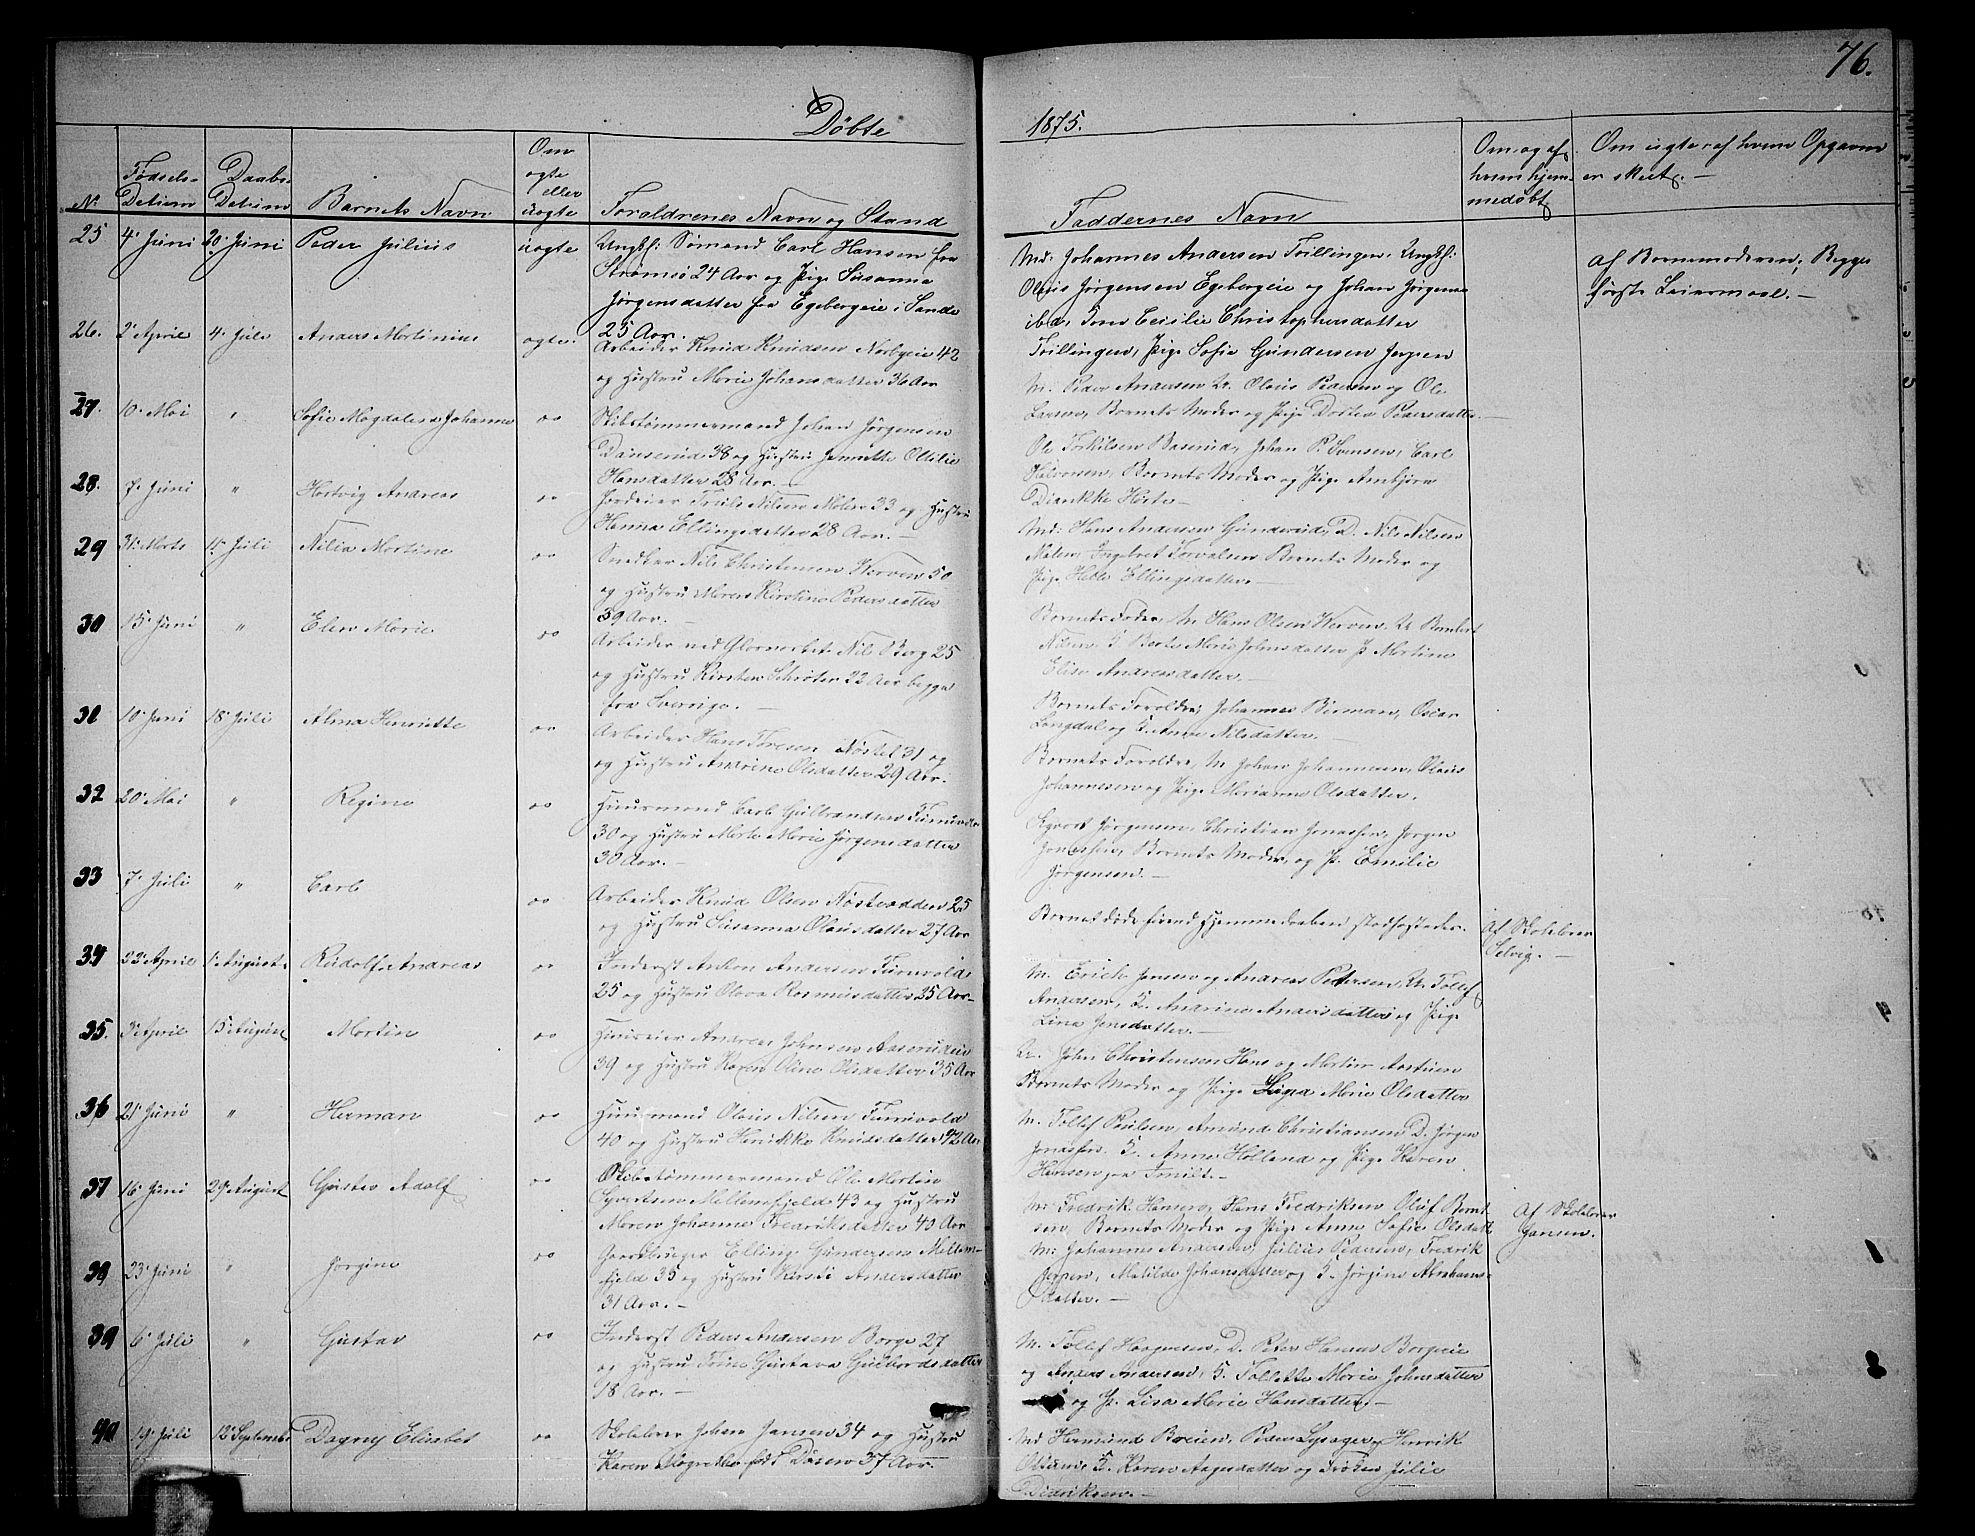 76.
Døbte
1875.
No
Fødsels-
Datum
Daabs-
Datum
Barnets Navn
Om
ægte
eller
uægte
Forældrenes Navn og Stand
Faddernes Navn
Om og af
hvem hjem-
medøbt
Om uægte, af hvem Opgaven
er skeet. —
25 4 Juni 20 Juni Peder Julius uægte Ungkl: Sømand Carl Hansen fra
Strømsø 24 Aar og Pige Susanna
Jørgensdatter fra Egebergeie i Sande
25 Aar.
Md: Johannes Andersen Trillingen, Ungkl:
Olaus Jørgensen Egebergeie og Johan Jørgensen
ibd, Kone Cecilie Christophersdatter
Trillingen, Pige Sofie Gundersen Jerpen
af Barnemoderen; Begges
første Leiermaal. —
26. 2 April 4 Juli Anders Martinius ægte. Arbeider Knud Knudsen Norbyeie 42
og Hustru Marie Johansdatter 36 Aar
M. Peder Andersen U. Olaus Pedersen og Ole
Larsen, Barnets Moder og Pige Dorthea Pedersdatter —
27. 10 Mai " Sofie Magdalena Johanne oo Skibstømmermand Johan Jørgensen
Danserud 38 og Hustru Jeanette Ottilie
Hansdatter 28 Aar. —
Ole Torkilsen Baserud, Johan P. Svensen, Carl
Halvorsen, Barnets Moder og Pige Ambjørn
28. 7 Juni " Hartvig Andreas oo Jordeier Truls Nilsen Malen 33 og Hustru
Hanna Ellingsdatter 28 Aar. —
Md: Hans Andersen Gunderud, D. Nils Nilsen
Malen, Ingebret Torvalsen Barnets Moder og
Pige Helle Ellingsdatter —
29 31 Marts 11 Juli Nilia Martine oo Snedker Nils Christensen Werven 50
og Hustru Maren Kirstine Pedersdatter
39 Aar. —
Barnets Fader, M Hans Olsen Werven, U Bernhart
Nilsen, K Berte Marie Johnsdatter P. Martine
Elise Andersdatter. —
30 15 Juni " Elen Marie oo Arbeider ved Glasværket Nils Berg 25
og Hustru Kirsten Schröter 22 Aar begge
fra Sverrige. —
Barnets Forældre, Johannes Birman, Oscar
Langdal og K. Anne Nilsdatter. —
31 10 Juni 18 Juli Alma Henriette oo Arbeider Hans Toresen Nøstet 31 og
og Hustru Andrine Olsdatter 29 Aar.
Barnets Forældre, M Johan Johannesen, Olaus
Johannesen og Pige Marianne Olsdatter.
32 20 Mai " Regine oo Huusmand Carl Gulbrandsen
30 og Hustru Marte Marie Jørgensdatter
30 Aar. —
Syvert Jørgensen, Christian Jonassen, Jørgen
Jonassen, Barnets Moder, og P. Emilie
Jørgensen. —
33 7 Juli " Carl oo Arbeider Knud Olsen Nøsterødden 25
og Hustru Susanna Olausdatter 27 Aar
Barnet døde førend Hjemmedaaben stadfæstedes.
Af Skolelærer
Selvig. —
34 22 April 1 August Rudolf Andreas oo Inderst Anton Andersen
25 og Hustru Olava Rasmusdatter 25 Aar —
M. Erich Jensen og Andreas Petersen, U. Tollef
Andersen, K. Andrine Andersdatter og Pige
Lina Jensdatter. —
35. 3 April 15 August Martin oo Huuseier Andreas Johnsen Aaserudeie
39 og Hustru Karen Oline Olsdatter 35 Aar
U. John Christensen Hans og Martin Aastuen
Barnets Moder og Pige Marie Olsdatter
36 21 Juni " Herman oo Huusmand Olaus Nilsen
40 og Hustru Henrikke Knudsdatter 42 Aar
M. Tollef Paulsen, Amund Christiansen D. Jørgen
Jonassen K. Anne Holland og Pige Karen
Hansen fra Smidt. —
37 16 Juni 29 August Gustav Adolf oo Skibstømmermand Ole Martin
Syvertsen Mellemfjeld 43 og Hustru
Maren Johanne Fredriksdatter 40 Aar
M: Fredrik Hansen, Hans Fredriksen Oluf Bernt-
sen, Barnets Moder og Pige Anne Sofie Olsdatt
Af Skolelærer
Jansen.
38 23 Juni " Jørgine oo Gaardbruger Elling Gundersen Mellem-
fjeld 35 og Hustru Kirsti Andersdatter
31 Aar. —
M: Johannes Andersen, Julius Pedersen, Fredrik
Jerpen, Matilde Johansdatter og K. Jørgine Abrahams-
datter. —
39 6 Juli " Gustav oo Inderst Peder Andersen Borge 27
og Hustru Trine Gustava Gulbrandsdatter
18 Aar. —
M. Tollef Haagensen, D. Peter Hansen Borgeie
og Anders Andersen, K. Tollette Marie Johnsdatter
og P. Lisa Marie Hansdatter. —
40 19 Juli 12 September Dagny Elisabet oo Skolelærer Johan Jansen 34 og Hustru
Karen Magrethe født Düsen 37 Aar. —
Md Hermund Breien, Peder Lysager, Henrik
K. Karen Aagesdatter og Frøken Julie
Didriksen. —